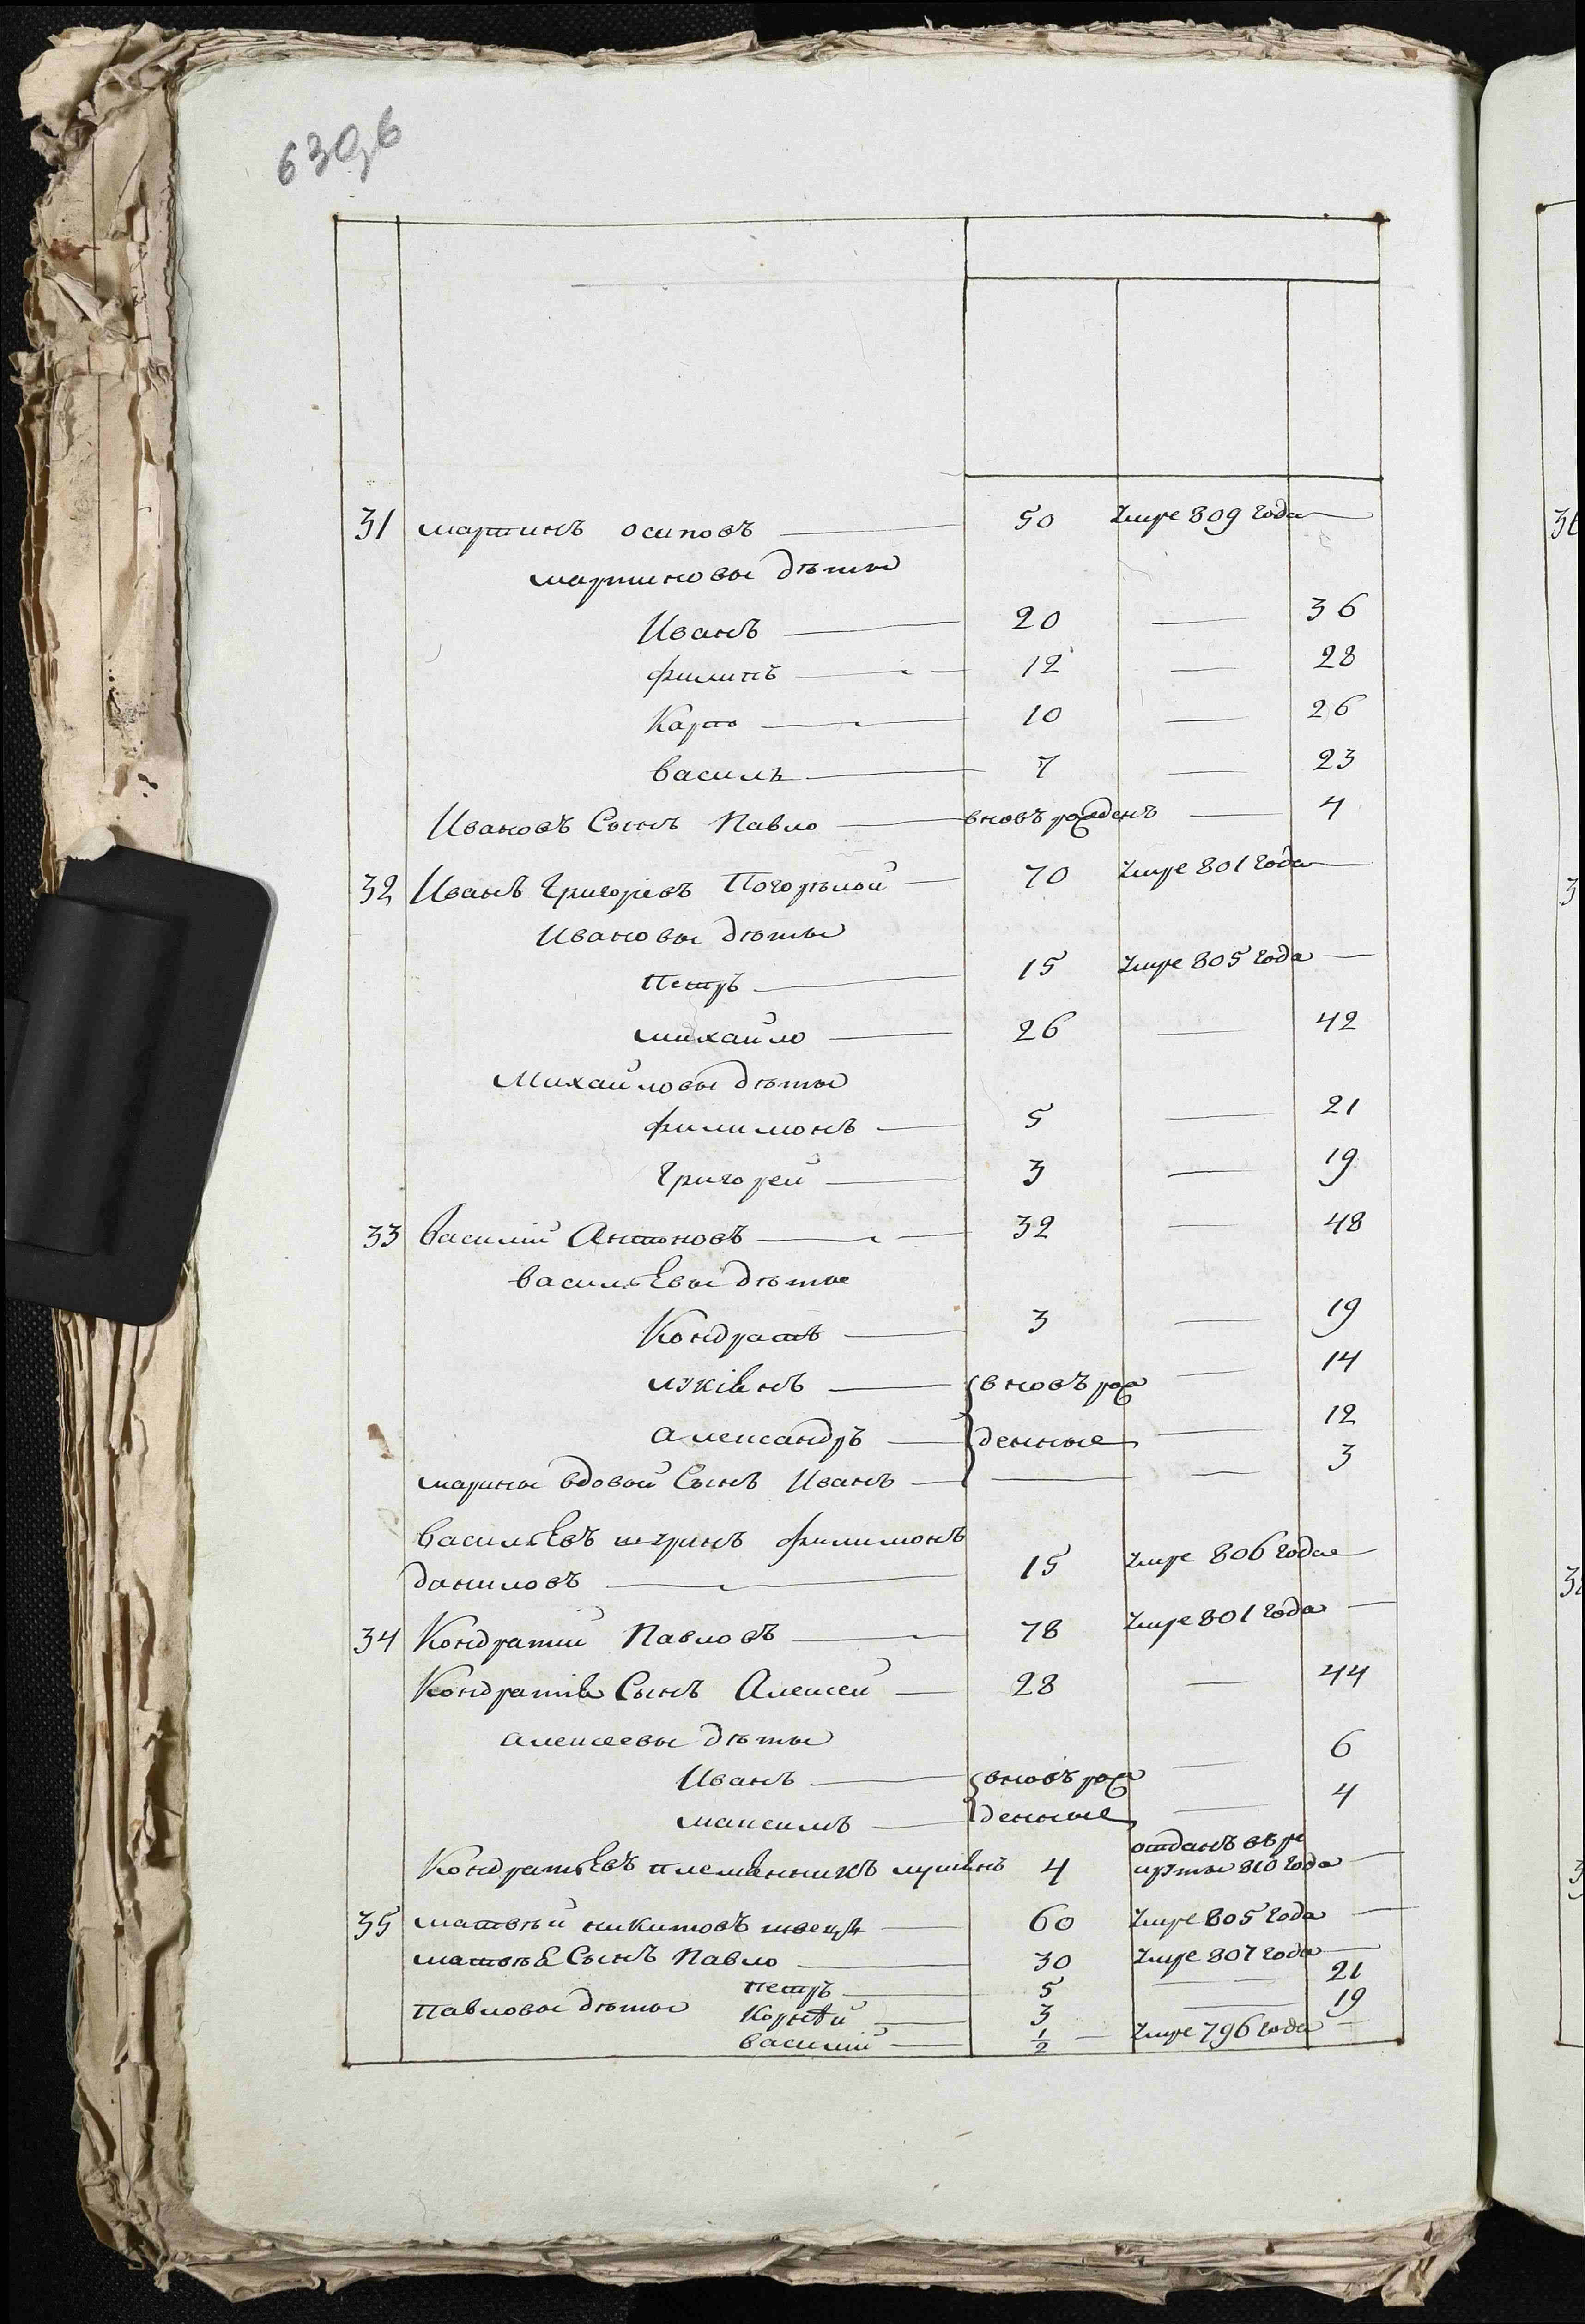 639б
31 мартинъ осиповъ — 50 умре 809 года —
мартиновы дѣти
Иванъ — 20 — 36
филипъ — 12 — 28
Карпо — 10 — 26
василь — 7 — 23
Ивановъ Сынъ Павло — вновъ рожденъ — 4
32 Иванъ Григоріевъ Погорѣлой — 70 умре 801 года —
Ивановы дѣти
Петръ — 15 умре 805 года —
михайло — 26 — 42
Михайловы дѣти
филимонъ — 5 — 21
Григорей — 3 — 19
33 василій Антоновъ — 32 — 48
васильевы дѣти
Кондратъ — 3 — 19
лукіянъ — вновъ рож — 14
александръ — денные — 12
марины вдовой Сынъ Иванъ — — 3
васильевъ шуринъ филимонъ
даниловъ — 15 умре 806 года
34 Кондратий Павловъ — 78 умре 801 года —
Кондратіев Сынъ Алексей — 28 — 44
алексеевы дѣти
Иванъ — вновъ рож — 6
максимъ — денные — 4
отданъ въ ре
Кондратьевъ племянникъ 4 круты 810 года —
35 матвѣй никитовъ швецъ — 60 умре 805 года —
матвѣев Сынъ Павло — 30 умре 807 года —
Петръ — 5 — 21
Павловы дѣти Корнѣй — 3 — 19
василий — 1/2 — умре 796 года —